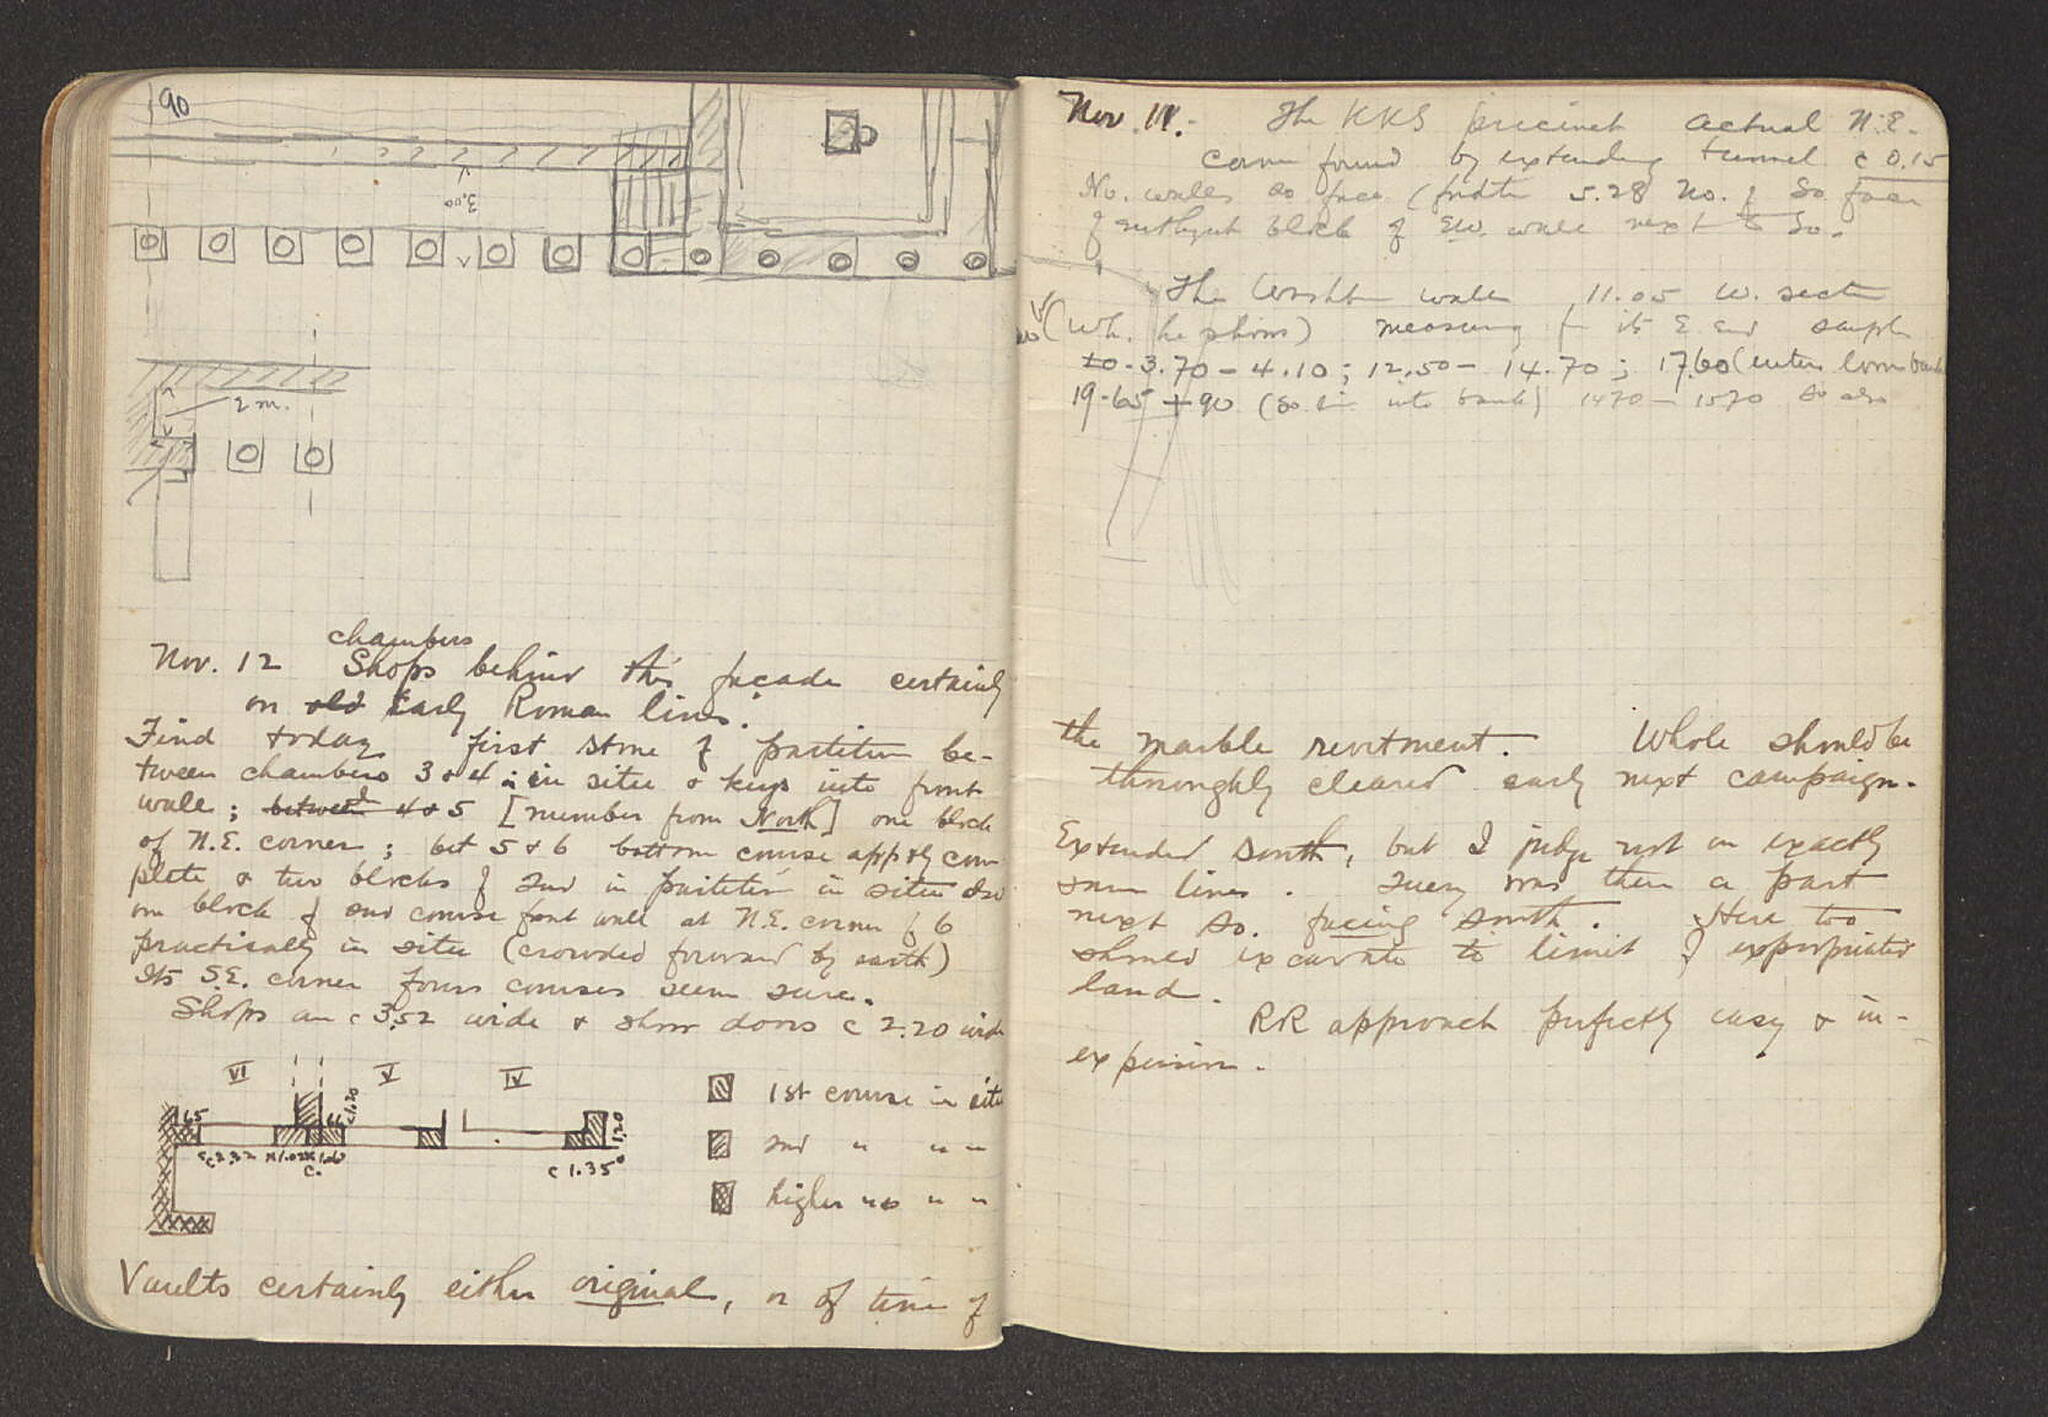 90
3.00
2 m.
Nov. 12 Shops behind this façade certainly
chambers
on old Early Roman lines.
Find today first stone of partition be-
tween chambers 3 & 4 in situ & keys into front
wall; between 4 & 5 [number from North] one block
of N.E. corner; bet 5 & 6 bottom course appdly com
plete & two blocks of 2nd in partition in situ also
one block of 2nd course front wall at N.E. corner of 6
practically in situ (crowded forward by earth)
Its S.E. corner four courses seem sure.
Shops are c 3.52 wide & show doors c 2.20 wide
VI V IV
65 c 1.20 1.20
c 2.32 1.02 1.00 c 1.35
c.
1st course in situ
2nd " " "
higher " " "
Vaults certainly either original, or of time of
Nov. 11.- The KKS precinct actual N.E.
corner found by extending tunnel c 0.15
No. walls so face ( 5.28 No. of So. face
of block of EW. wall next to So.
The wall 11.05 W.
(Wh. he shows) measuring its E. end
10-3.70 - 4.10; 12.50 - 14.70; 17.60 (enters bank
19.65 + 90 (so into bank) 1470 - 1570 so also
the marble revetment. Whole should be
thoroughly cleared early next campaign.
Extended south, but I judge not on exactly
same lines. was there a part
next So. facing south. Here too
should excavate to limit of expropriated
land.
RR approach perfectly easy & in-
expensive.